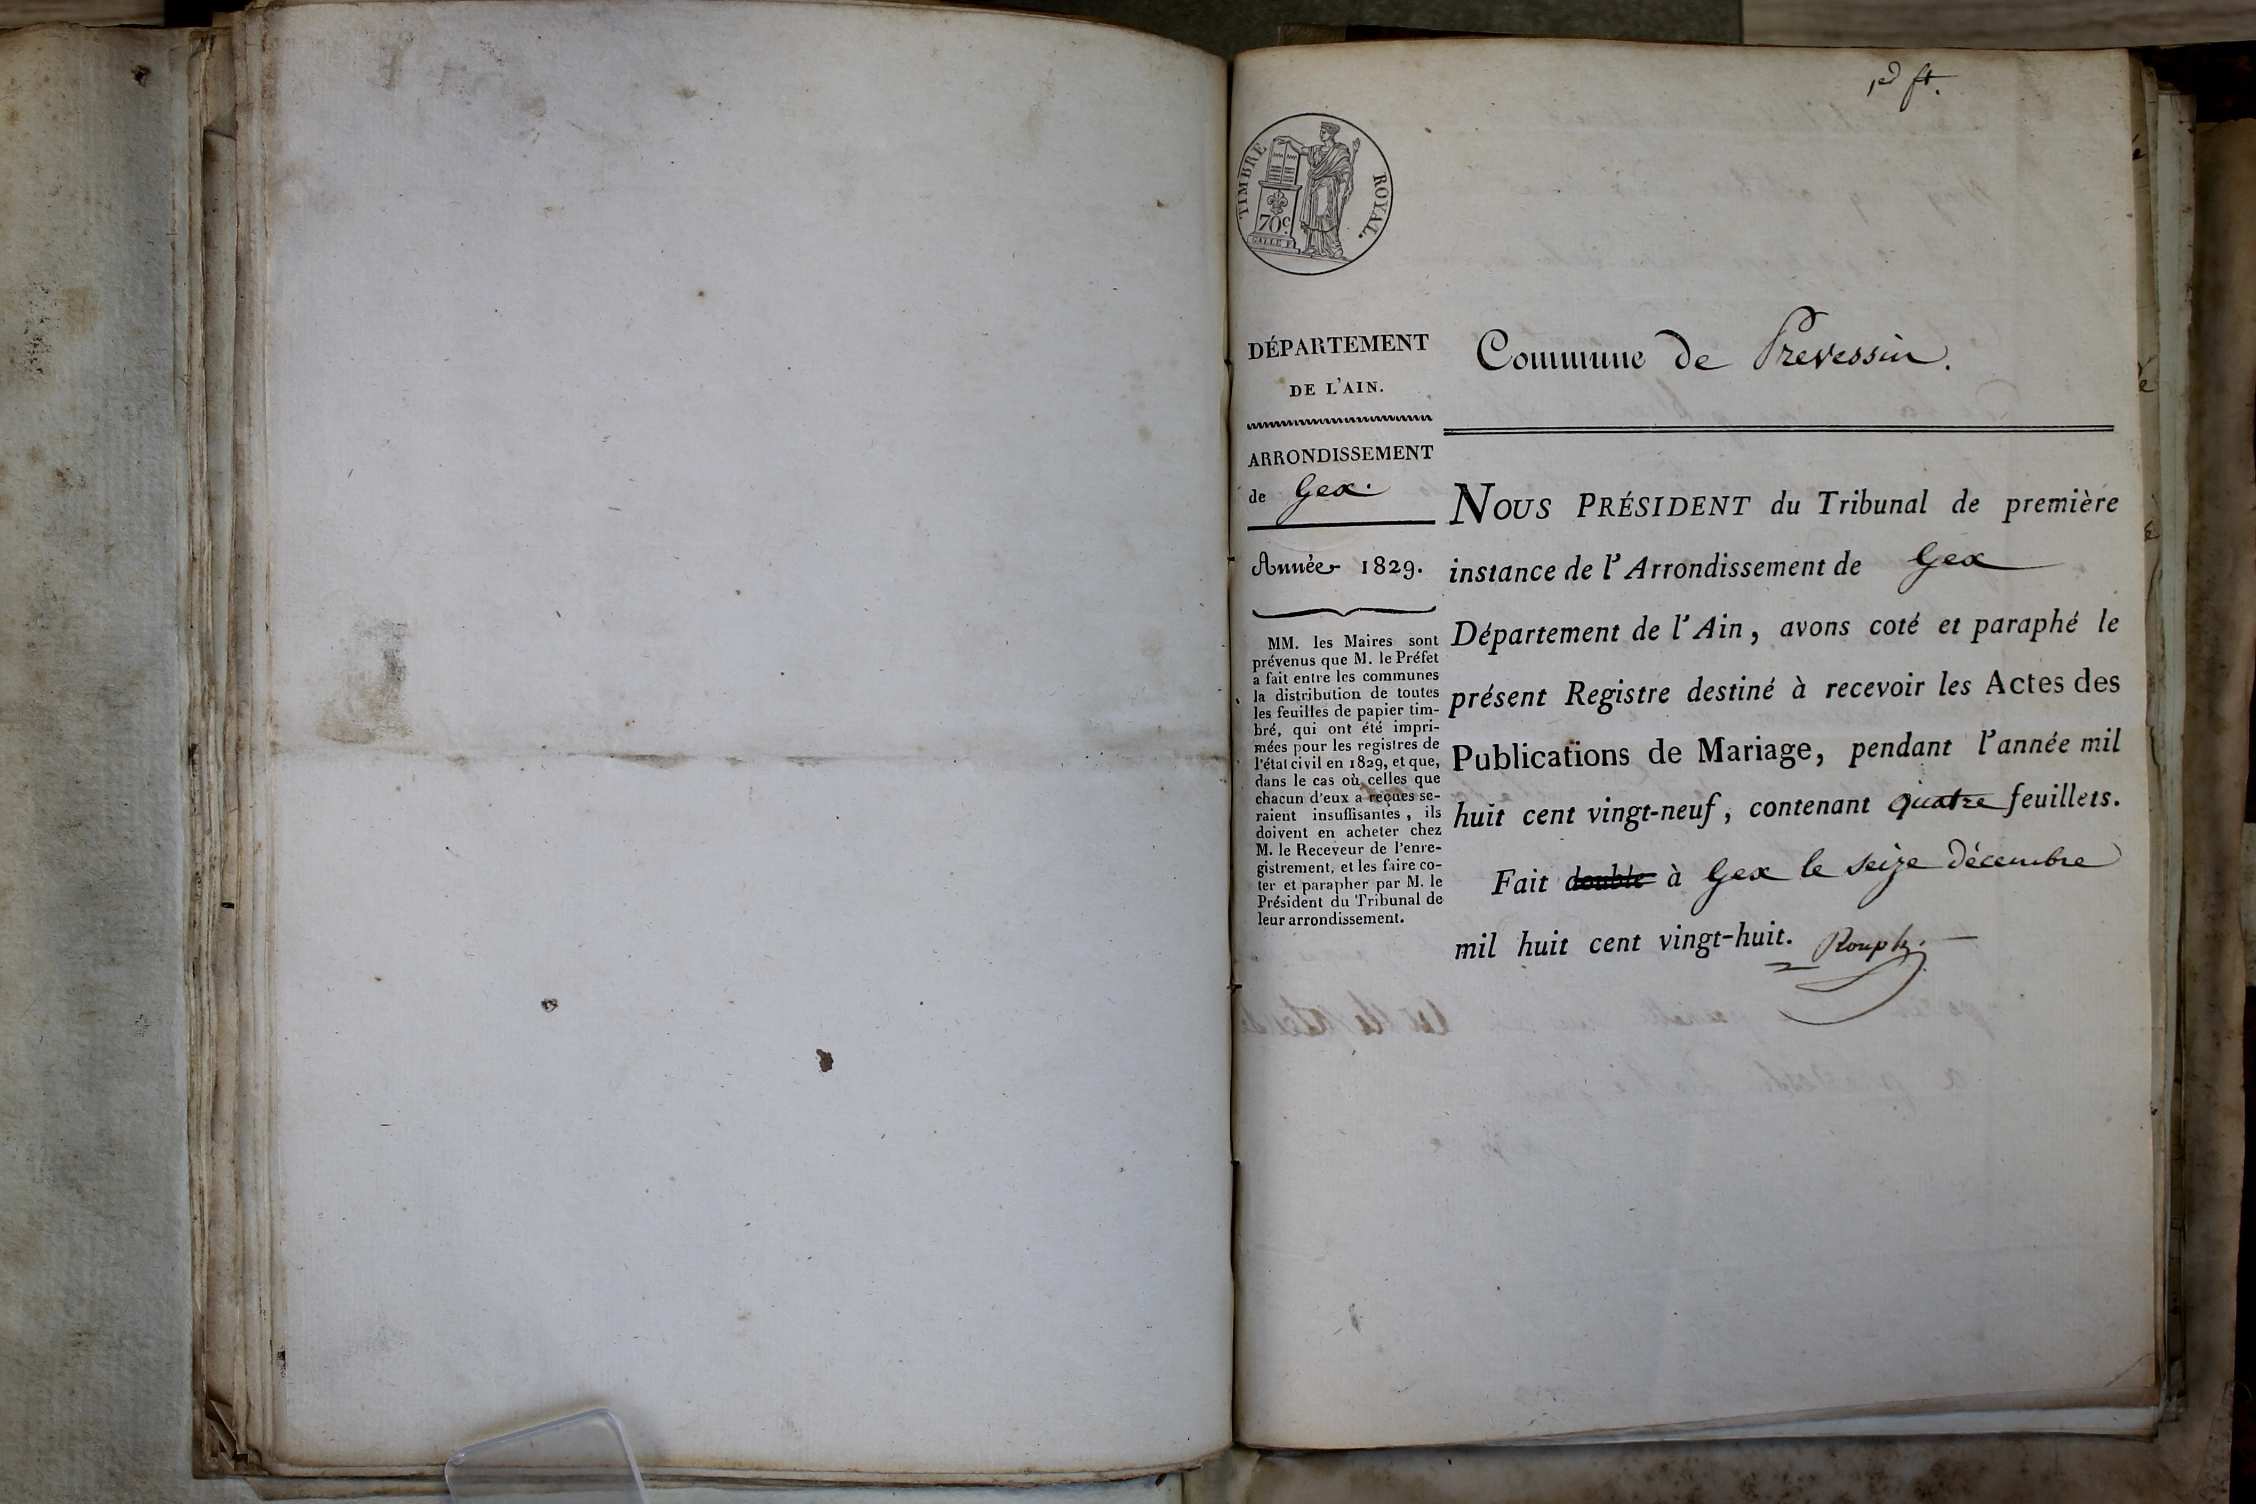 1er ft.
TIMBRE ROYAL.
70c.
DÉPARTEMENT
DE L'AIN.
ARRONDISSEMENT
de Gex.
Année 1829.
MM. les Maires sont
prévenus que M. le Préfet
a fait entre les communes
la distribution de toutes
les feuilles de papier tim-
bré, qui ont été impri-
mées pour les registres de
l'état civil en 1829, et que,
dans le cas où celles que
chacun d'eux a reçues se-
raient insuffisantes, ils
doivent en acheter chez
M. le Receveur de l'enre-
gistrement, et les faire co-
ter et parapher par M. le
Président du Tribunal de
leur arrondissement.
Commune de Prevessin.
NOUS PRÉSIDENT du Tribunal de première
instance de l'Arrondissement de Gex
Département de l'Ain, avons coté et paraphé le
présent Registre destiné à recevoir les Actes des
Publications de Mariage, pendant l'année mil
huit cent vingt-neuf, contenant quatre feuillets.
Fait double à Gex le seize décembre
mil huit cent vingt-huit.